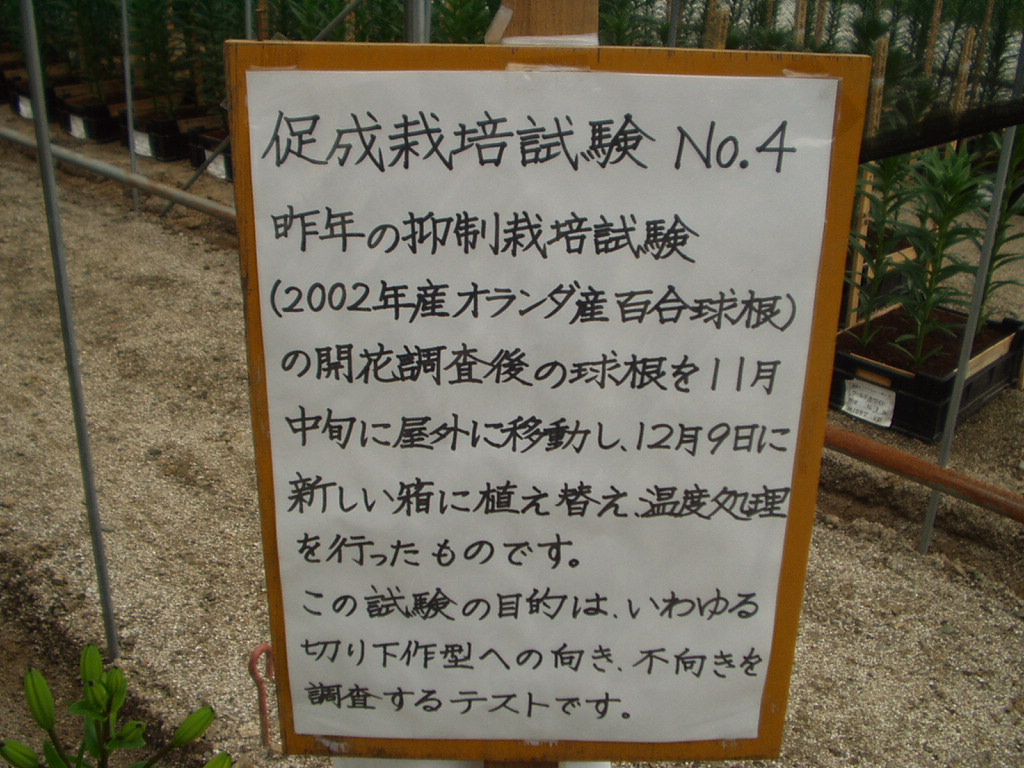 促成栽培試験 No.4
昨年の抑制栽培試験
(2002年産オランダ産百合球根)
の開花調査後の球根を11月
中旬に屋外に移動し、12月9日に
新しい箱に植え替え、温度処理
を行ったものです。
この試験の目的は、いわゆる
切り下作型への向き、不向きを
調査するテストです。